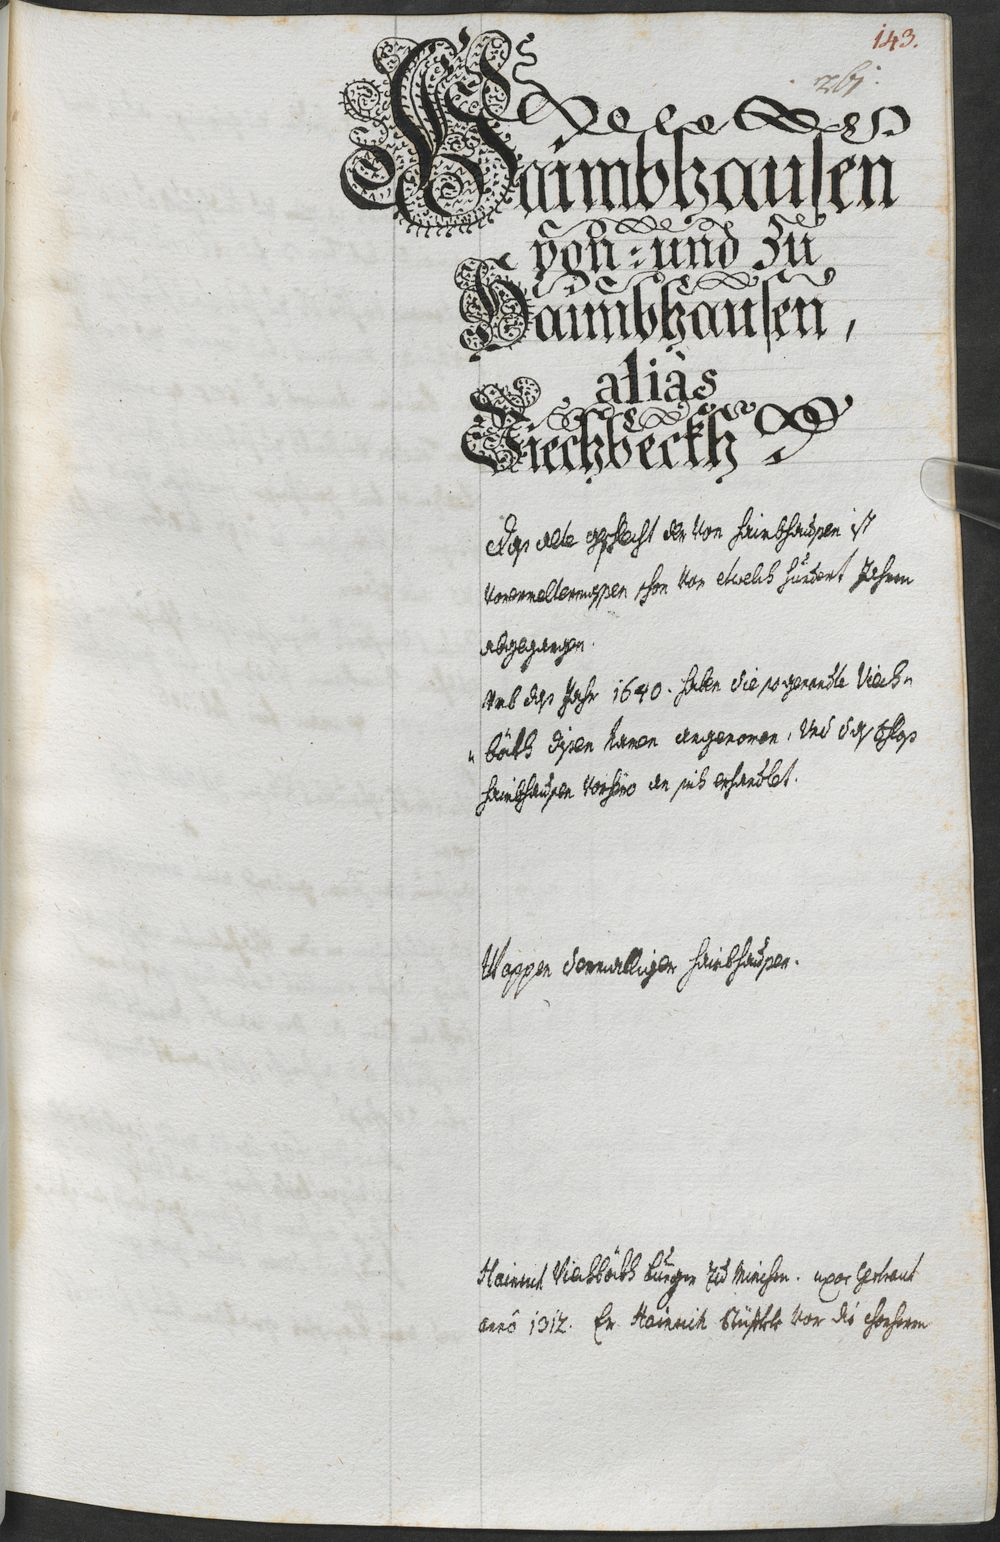 143.
261.
Haimbhausen
von: und zu
Haimbhausen,
aliàs
Viechbeckh
Das alte geschlecht der von Haimbhausen ist
vorermeltermassen schon vor etwelch hundert Jahren
abgegangen.
Umb das Jahr 1640. haben die sogenandte Viech-
bäkh disen namen angenomen, und das schloss
Haimbhausen vorhero an sich erhandlet.
Wappen dermalliger Haimbhausen.
Hainrich Viechbäkh burger zu Minchen. uxor Gertraut
anno 1312. Er Hainrich stüfftete vor die chorherrn